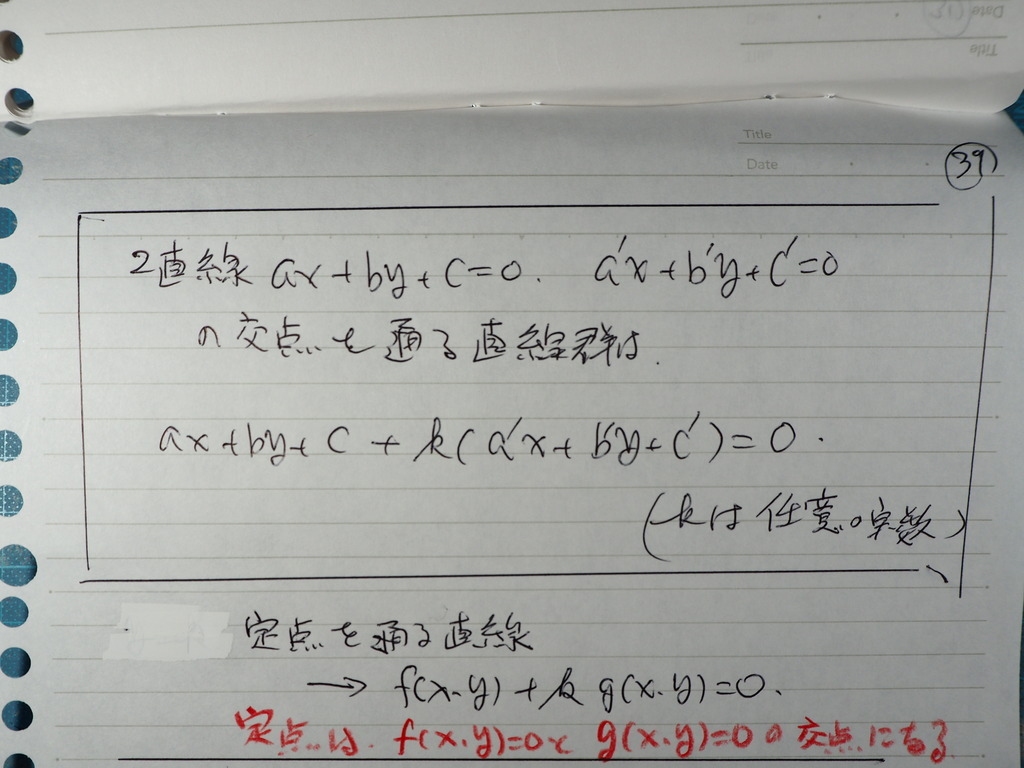 Title
Date
39
2直線 ax+by+c=0. a'x+b'y+c'=0
の交点を通る直線群は.
ax+by+c+k(a'x+b'y+c')=0.
(kは任意の実数)
定点を通る直線
→ f(x.y)+k g(x.y)=0.
定点は. f(x.y)=0と g(x.y)=0の交点になる